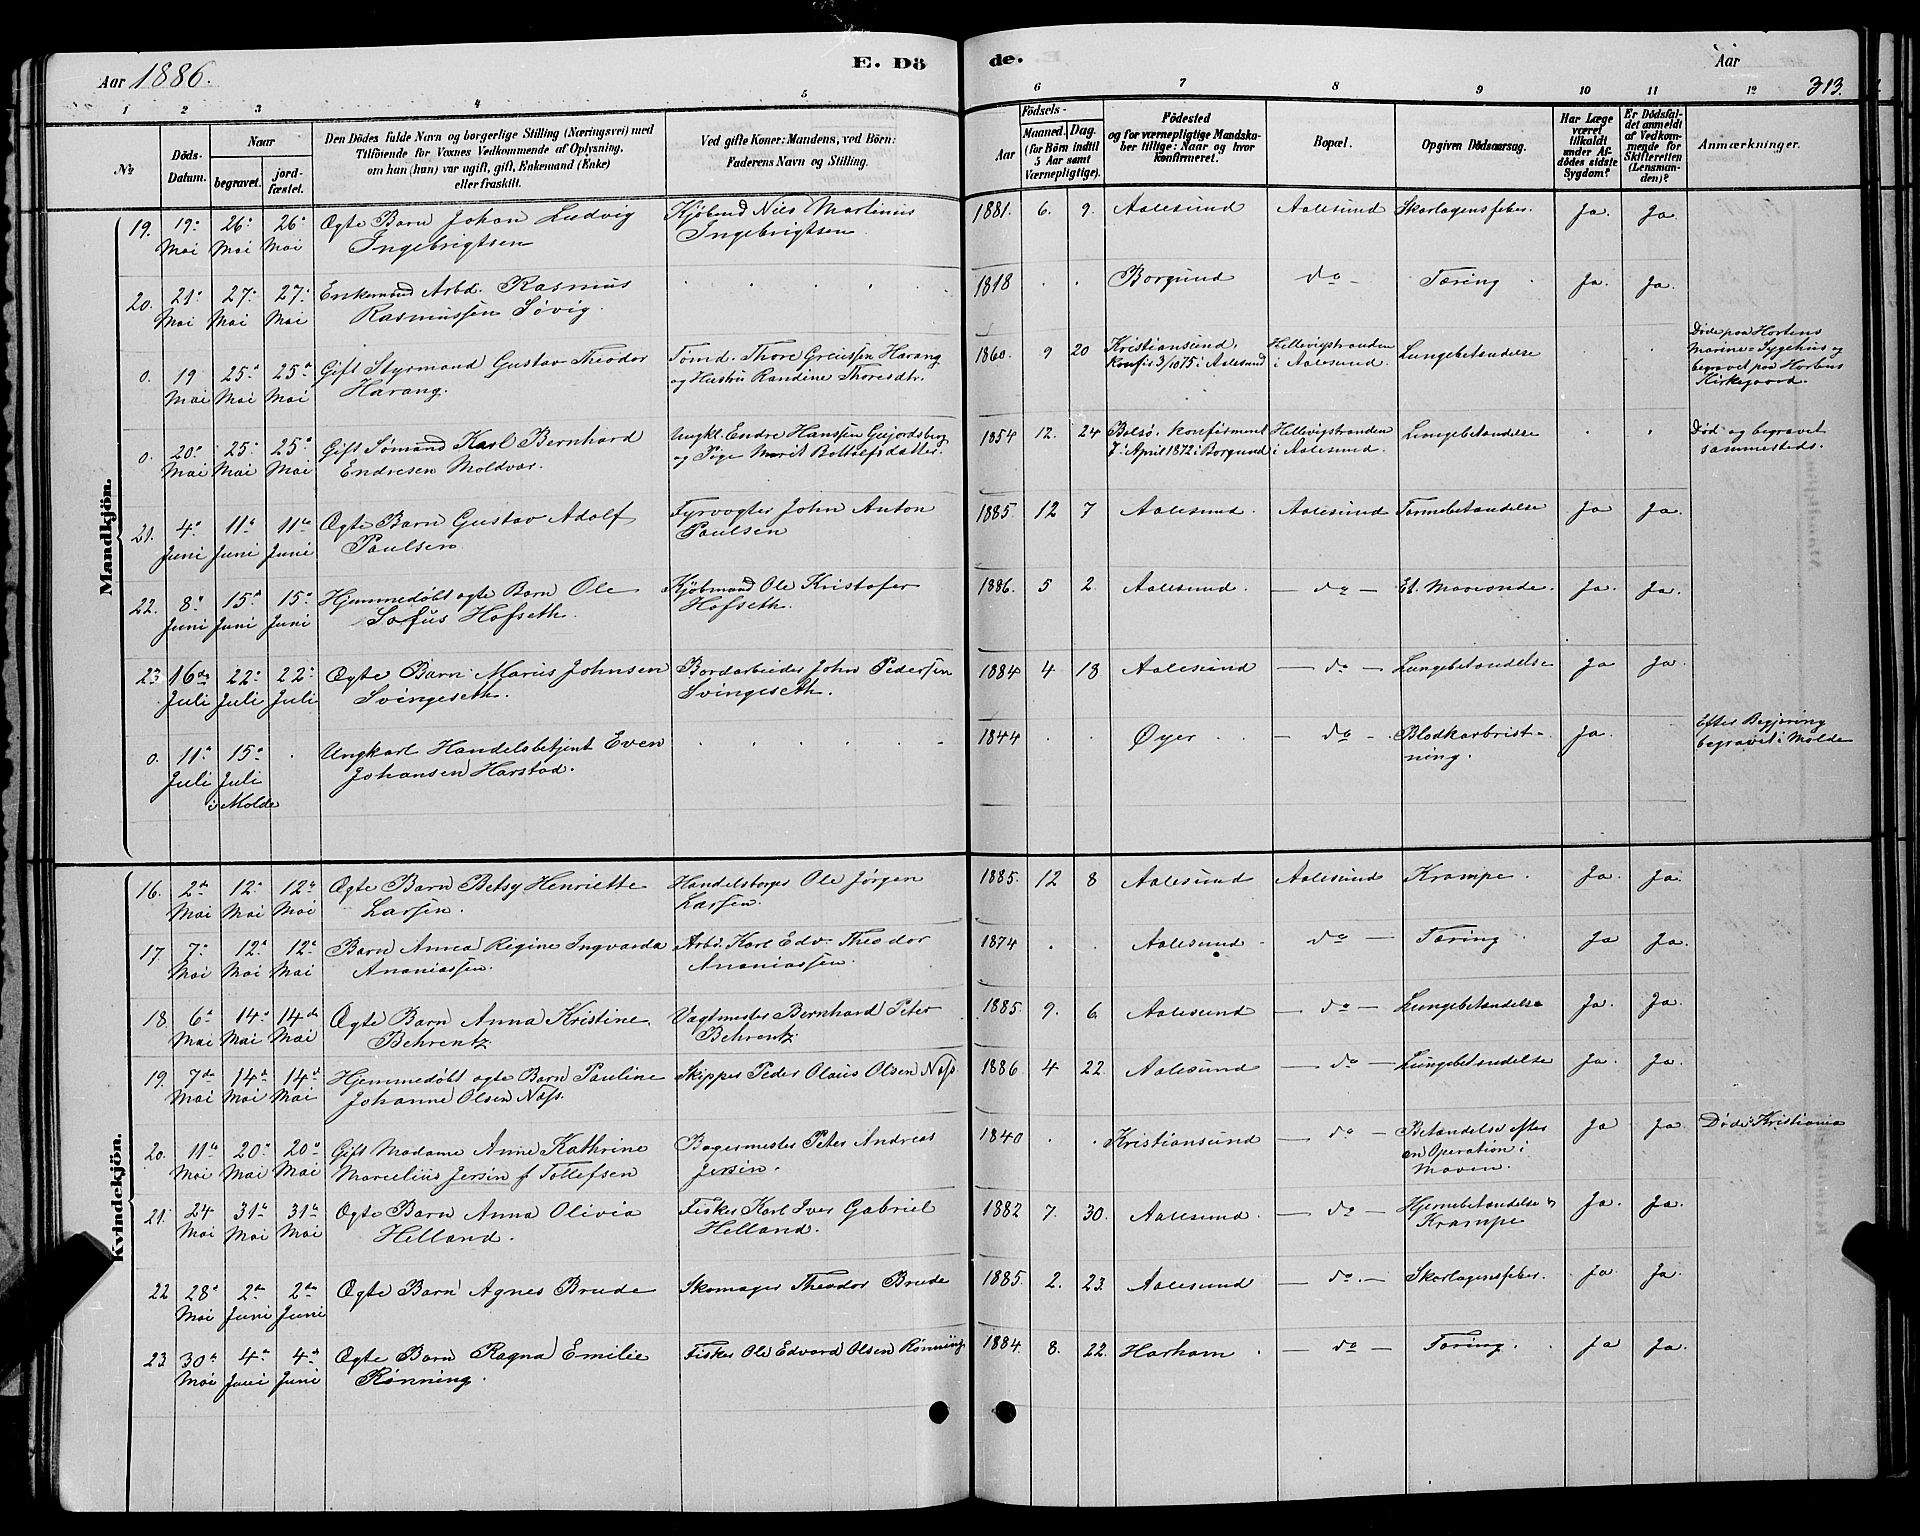 Aar 1886. E. Dö de. Aar 313.
1 2 3 4 5 6 7 8 9 10 11 12
No Döds-Datum. Naar begravet. jordfæstet. Den Dödes fulde Navn og borgerlige Stilling (Næringsvei) med Tilföiende for Voxnes Vedkommende af Oplysning, om han (hun) var ugift, gift, Enkemand (Enke) eller fraskilt. Ved gifte Koner: Mandens, ved Börn: Faderens Navn og Stilling. Födsels- Aar Maaned. Dag. (for Börn indtil 5 Aar samt Værnepligtige). Födested og for værnepligtige Mandskaber tillige: Naar og hvor konfirmeret. Bopæl. Opgiven Dödsaarsag. Har Læge været tilkaldt under Afdödes sidste Sygdom? Er Dödsfaldet anmeldt af Vedkommende for Skifteretten (Lensmanden)? Anmærkninger.
Mandkjön.
19. 19. Mai 26. Mai 26. Mai Ægte Barn Johan Ludvig Ingebrigtsen Kjøbmd Nils Martinus Ingebrigtsen 1881. 6. 9. Aalesund Aalesund Skarlagensfeber. Ja. Ja.
20. 21. Mai 27. Mai 27. Mai Enkemand Arbd. Rasmus Rasmussen Søvig. 1818 Borgund do Tæring Ja. Ja.
0. 19 Mai 25. Mai 25. Mai Gift Styrmand Gustav Theodor Harang. Tømd. Thore Greiussen Harang og Hustru Randine Thoresdtr. 1860. 9 20 Kristiansund, konfir 3/10 75 i Aalesund Hellevigstranden i Aalesund. Lungebetændelse Døde paa Hortens Marine-Sygehus og begravet paa Hortens Kirkegaard.
0. 20. Mai 25. Mai 25. Mai Gift Sømand Karl Bernhard Endresen Moldvær. Ungkl. Endre Hanssen og Pige Marit Bottolfsdatter. 1854 12. 24 Bolsø. Konfirmeret 7. April 1872 i Borgund Hellevigstranden i Aalesund. Lungebetændelse Død og begravet sammesteds.
21. 4. Juni 11. Juni 11. Juni Ægte Barn Gustav Adolf Paulsen Fyrvogter John Anton Paulsen 1885. 12 7 Aalesund. Aalesund Tarmebetændelse Ja Ja.
22. 8. Juni 15. Juni 15. Juni Hjemmedøbt ægte Barn Ole Sofus Hofseth. Kjøbmand Ole Kristofer Hofseth. 1886. 5 2. Aalesund. do Et. Maveonde. Ja. Ja.
23 16de Juli 22. Juli 22. Juli Ægte Barn Marius Johnsen Svingeseth. Bordarbeider John Pedersen Svingeseth. 1884 4 18 Aalesund do Lungebetændelse Ja Ja.
0. 11. Juli 15. Juli i Molde Ungkarl Handelsbetjent Even Johansen Harstad. 1844 Øyer do Blodkarbristning. Ja. Efter Begjæring begravet i Molde
Kvindekjön.
16. 2. Mai 12. Mai 12. Mai Ægte Barn Betsy Henriette Larsen. Handelsborger Ole Jørgen Larsen. 1885. 12 8 Aalesund Aalesund Krampe. Ja. Ja.
17. 7. Mai 12. Mai 12. Mai Barn Anna Regine Ingvarda Ananiassen. Arbd. Karl Edv. Theodor Ananiassen. 1874 Aalesund do Tæring Ja Ja.
18. 6. Mai 14. Mai 14de Mai Ægte Barn Anna Kristine Behrentz. Vagtmester Bernhard Peter Behrentz. 1885 9. 6. Aalesund do Lungebetændelse Ja. Ja.
19. 7de Mai 14. Mai 14. Mai Hjemmedøbt ægte Barn Pauline Johanne Olsen Næss. Skipper Peder Olaus Olsen Næss. 1886 4 22. Aalesund do Lungebetændelse Ja. Ja.
20. 11te Mai 20. Mai 20. Mai Gift Madame Anne Kathrine Marcelius Jersin f Tollefsen Bagermester Peter Andreas Jersin. 1840 Kristiansund do Betændelse efter en Operation i Maven. Ja Ja. Døde i Kristiania
21. 24 Mai 31te Mai 31te Mai Ægte Barn Anna Olivia Helland. Fisker Karl Iver Gabriel Helland. 1882 7. 30. Aalesund. do Hjernebetændelse & Krampe Ja. Ja.
22 28. Mai 2den Juni 2den Juni Ægte Barn Agnes Brude Skomager Theodor Brude 1885. 2. 23. Aalesund do. Skarlagensfeber. Ja Ja.
23 30. Mai 4. Juni 4. Juni Ægte Barn Ragna Emilie Rønning. Fisker Ole Edvard Olsen Rønning. 1884. 8. 22. Harham do Tæring. Ja Ja.